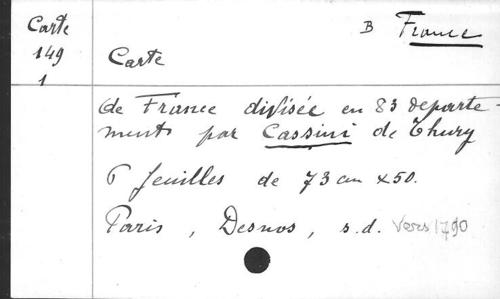 Carte
149
1
B France
Carte
de France divisée en 83 departe-
ments par Cassini de Thury
6 feuilles de 73 cm x 50.
Paris, Desnos, s.d. Vers 1790